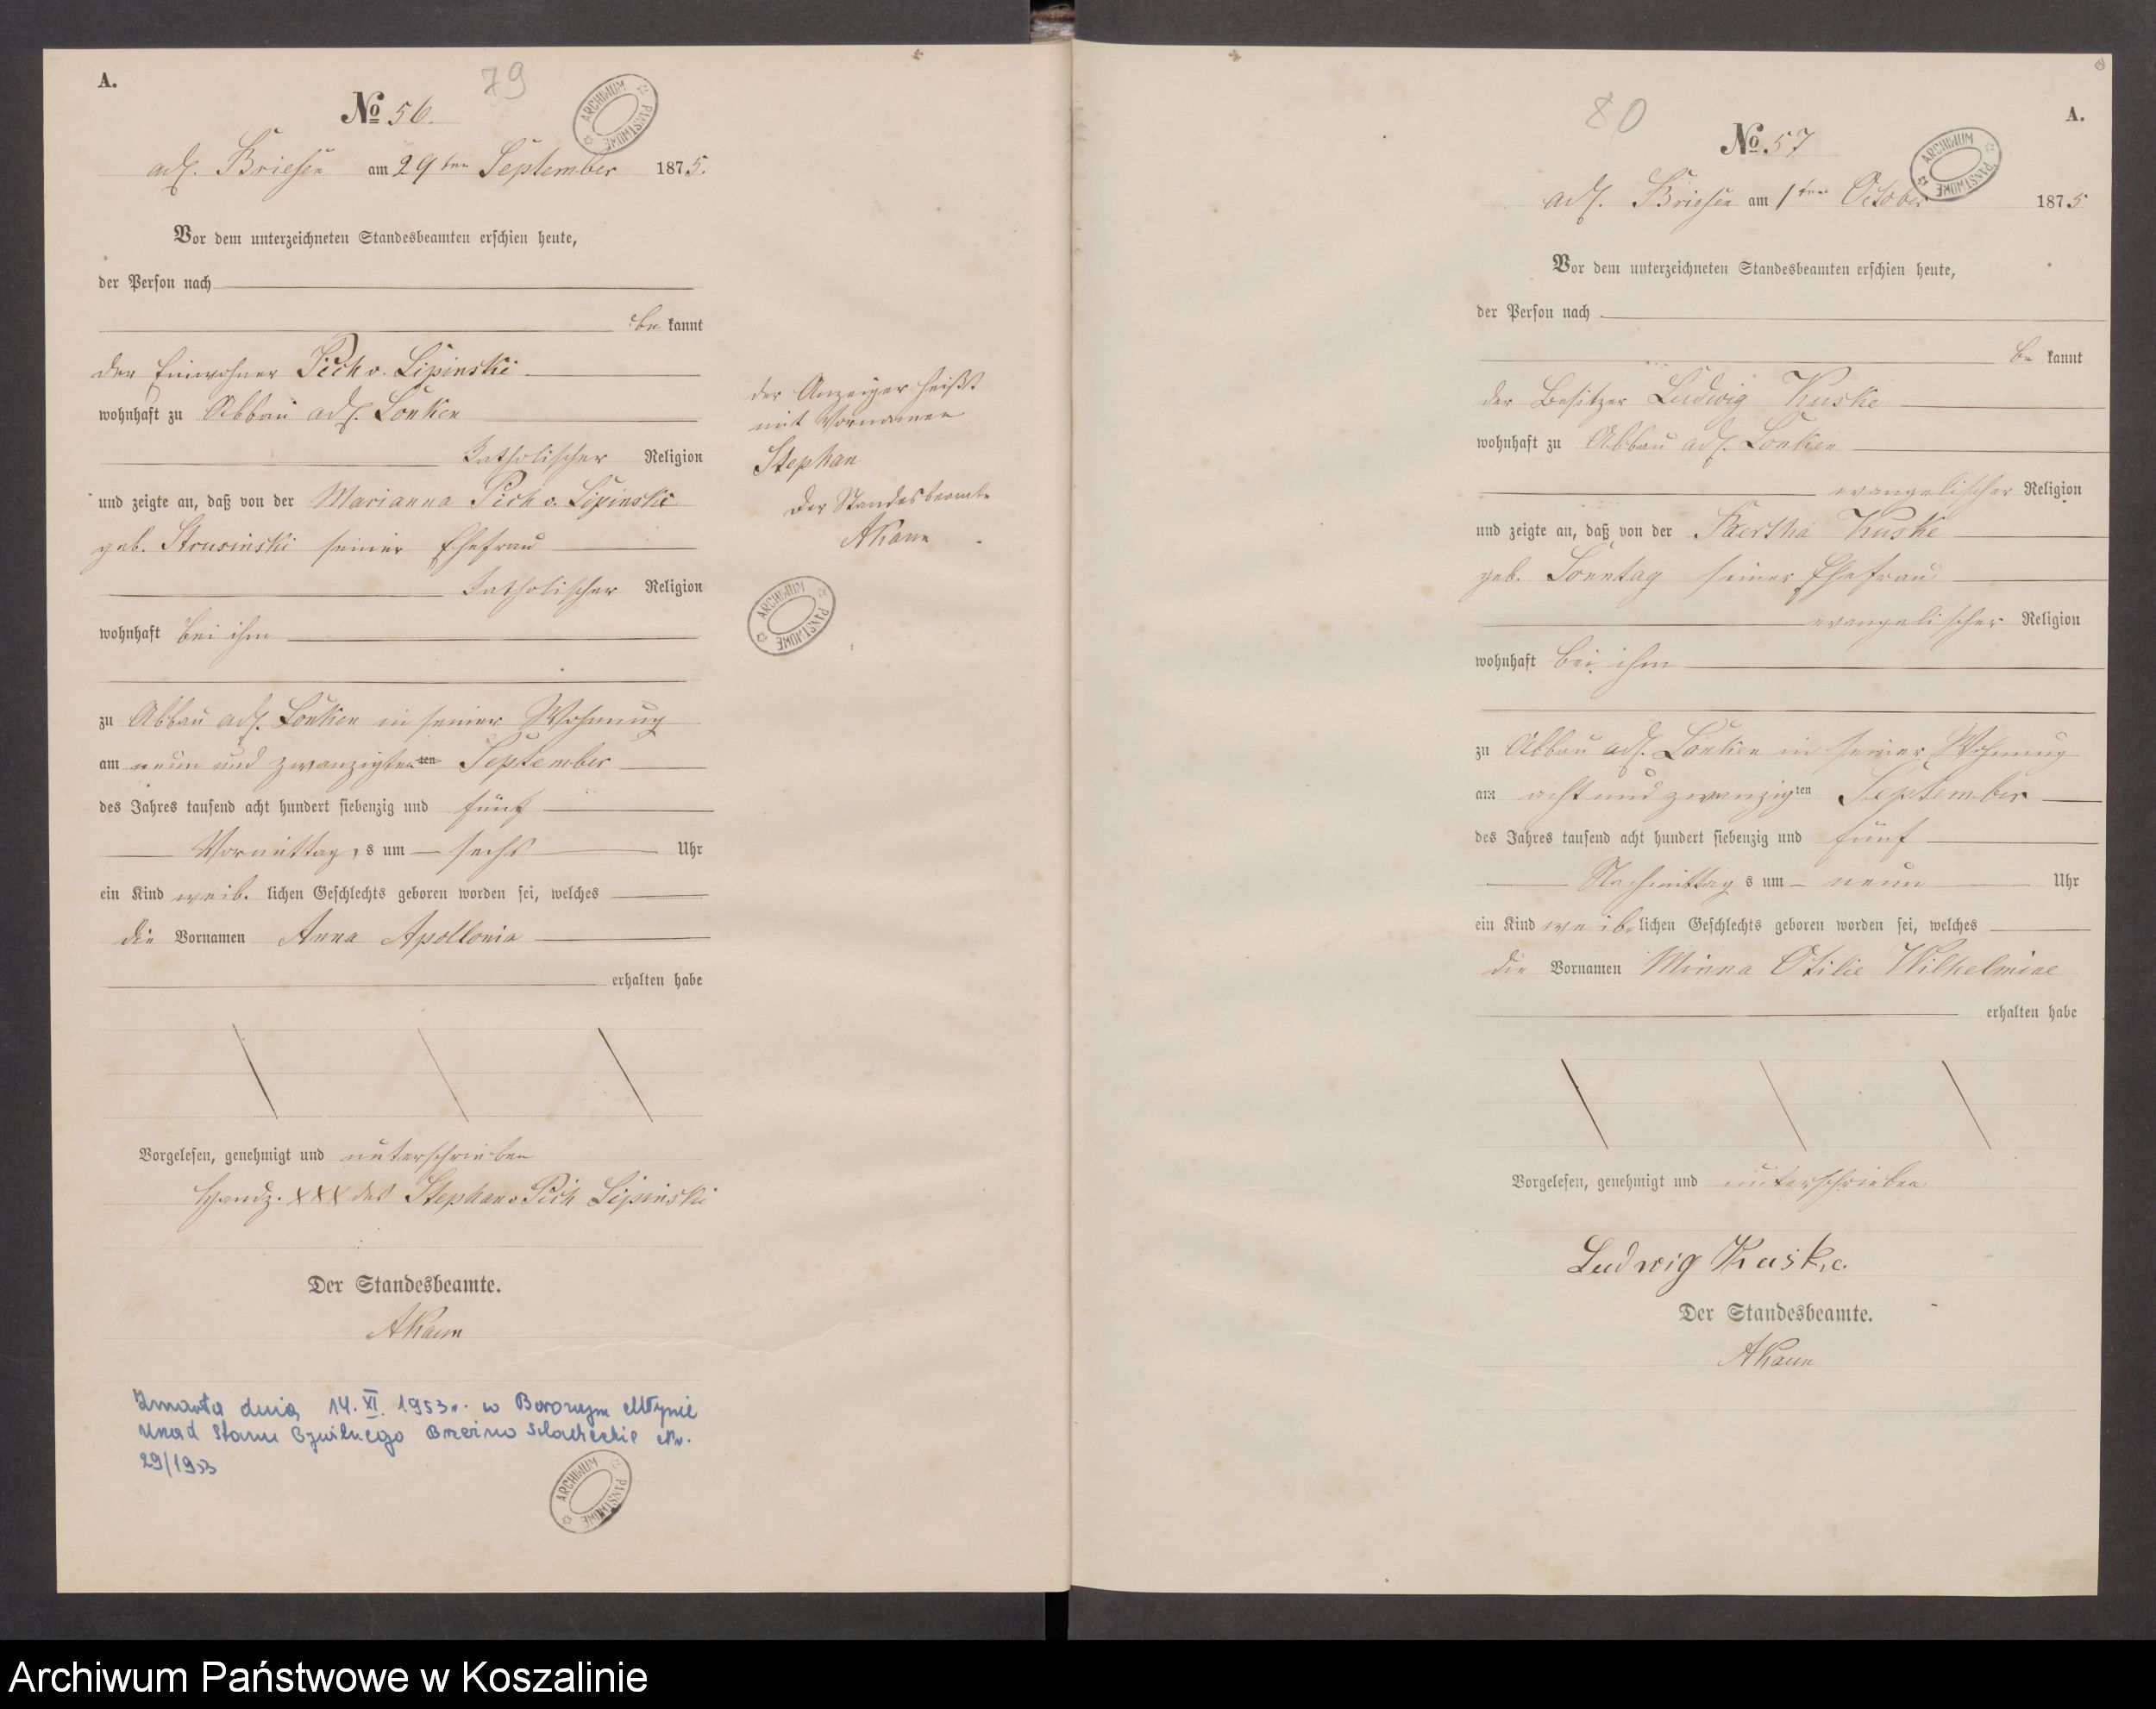 A.
79
No 56.
ARCHIWUM PAŃSTWOWE
adl. Briesen am 29ten September 1875.
Vor dem unterzeichneten Standesbeamten erschien heute,
der Person nach
be kannt
der Einwohner Pich v. Lipinski
wohnhaft zu Abbau adl. Lonken
katholischer Religion
und zeigte an, daß von der Marianna Pich v. Lipinski
geb. Strusinski seiner Ehefrau
katholischer Religion
wohnhaft bei ihm
zu Abbau adl. Lonken in seiner Wohnung
am neun und zwanzigten ten September
des Jahres tausend acht hundert siebenzig und fünf
Vormittags um sechs Uhr
ein Kind weib. lichen Geschlechts geboren worden sei, welches
die Vornamen Anna Apollonia
erhalten habe
Vorgelesen, genehmigt und unterschrieben
Handz. XXX des Stephan v Pich Lipinski
Der Standesbeamte.
AKann
Zmarła dnia 14.XI.1953r. w Borowym Młynie
Urząd Stanu Cywilnego Brzeźno Szlacheckie Nr.
29/1953
ARCHIWUM PAŃSTWOWE
der Anzeiger heißt
mit Vornamen
Stephan
Der Standesbeamte
AKann
ARCHIWUM PAŃSTWOWE
80
A.
No 57
ARCHIWUM PAŃSTWOWE
adl. Briesen am 1ten October 1875
Vor dem unterzeichneten Standesbeamten erschien heute,
der Person nach
be kannt
der Besitzer Ludwig Kuske
wohnhaft zu Abbau adl. Lonken
evangelischer Religion
und zeigte an, daß von der Bertha Kuske
geb. Sonntag seiner Ehefrau
evangelischer Religion
wohnhaft bei ihm
zu Abbau adl. Lonken in seiner Wohnung
am acht und zwanzigten September
des Jahres tausend acht hundert siebenzig und fünf
Nachmittags um neun Uhr
ein Kind weib. lichen Geschlechts geboren worden sei, welches
die Vornamen Minna Otilie Wilhelmine
erhalten habe
Vorgelesen, genehmigt und unterschrieben
Ludwig Kuske.
Der Standesbeamte.
AKann
Archiwum Państwowe w Koszalinie